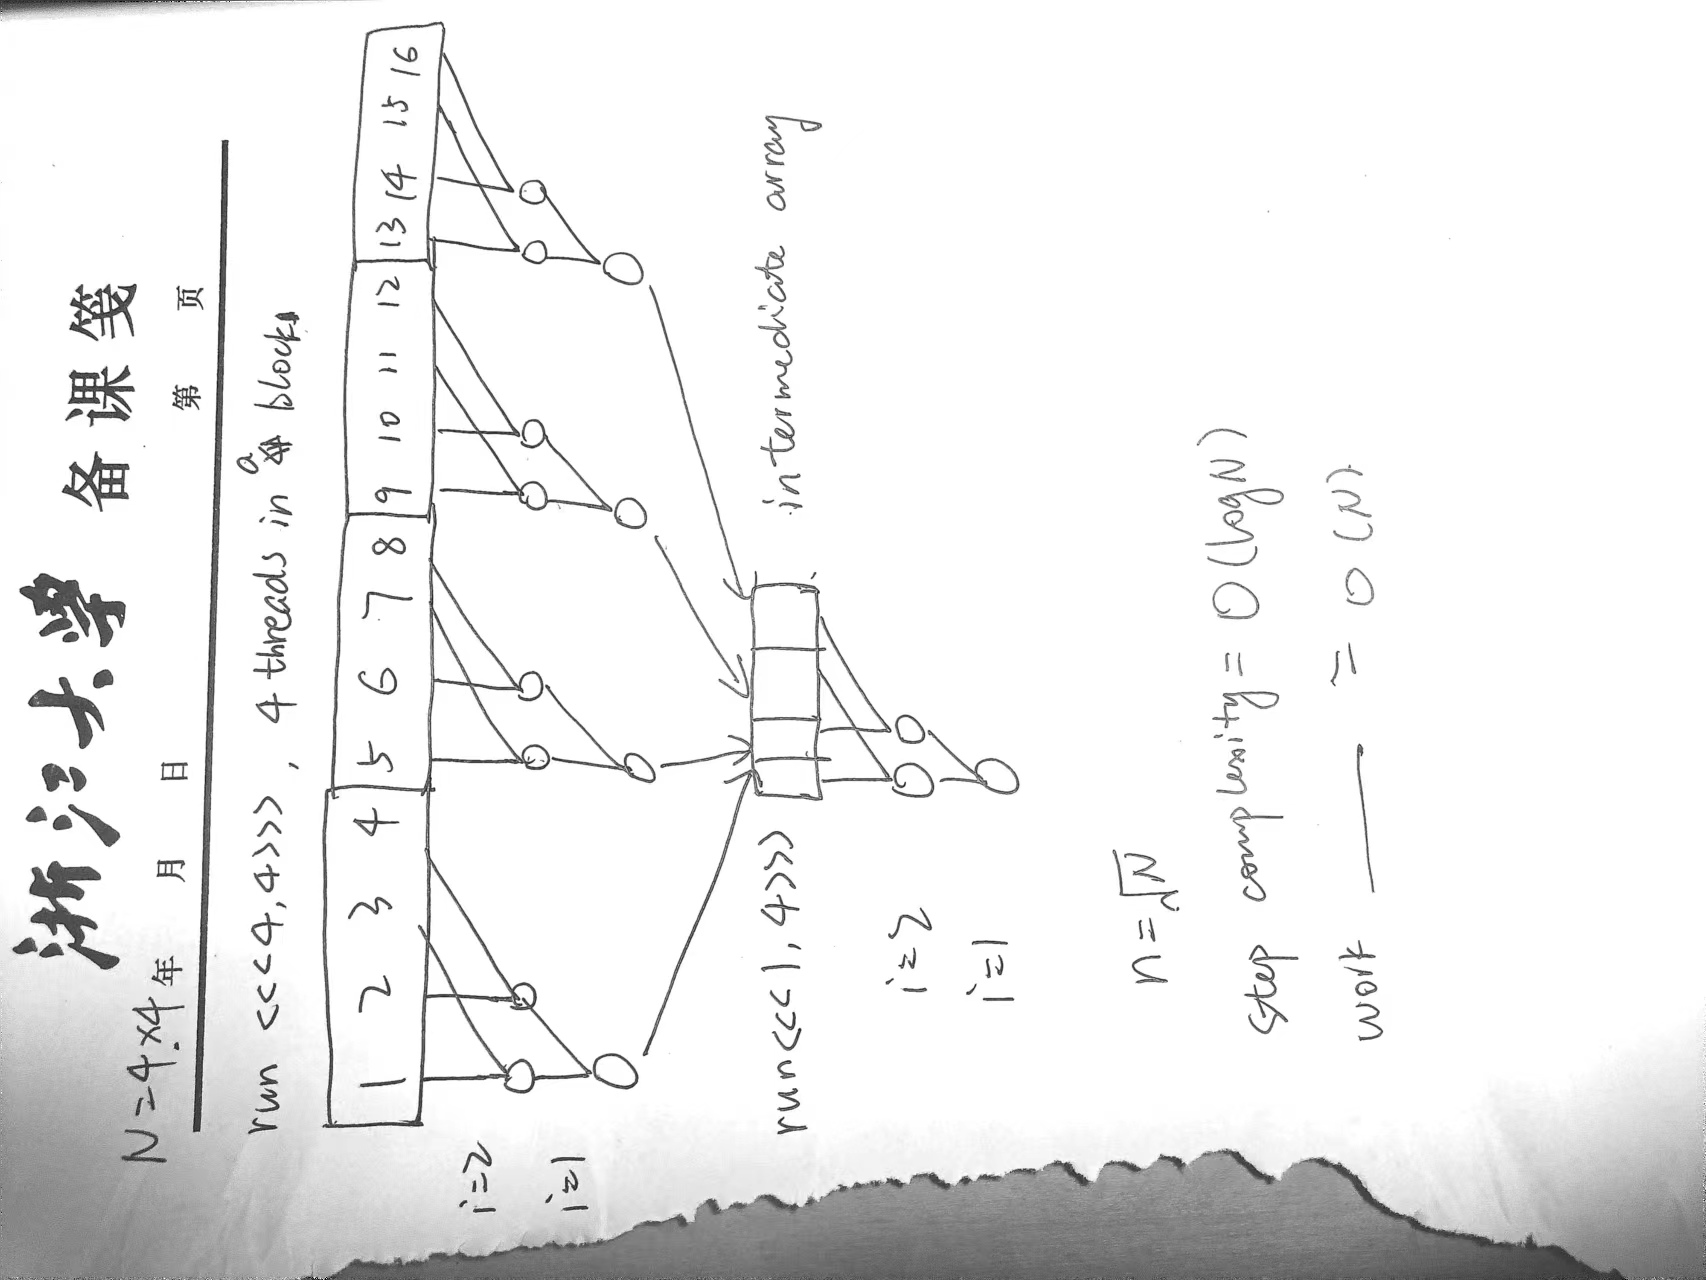 浙江大学 备课笺
N=4×4 年 月 日 第 页
run <<<4,4>>> , 4 threads in a block
1 2 3 4 5 6 7 8 9 10 11 12 13 14 15 16
i=2
i=1
run<<<1,4>>> intermediate array
i=2
i=1
n=√N
step complexity = O(logN)
work —— = O(N).